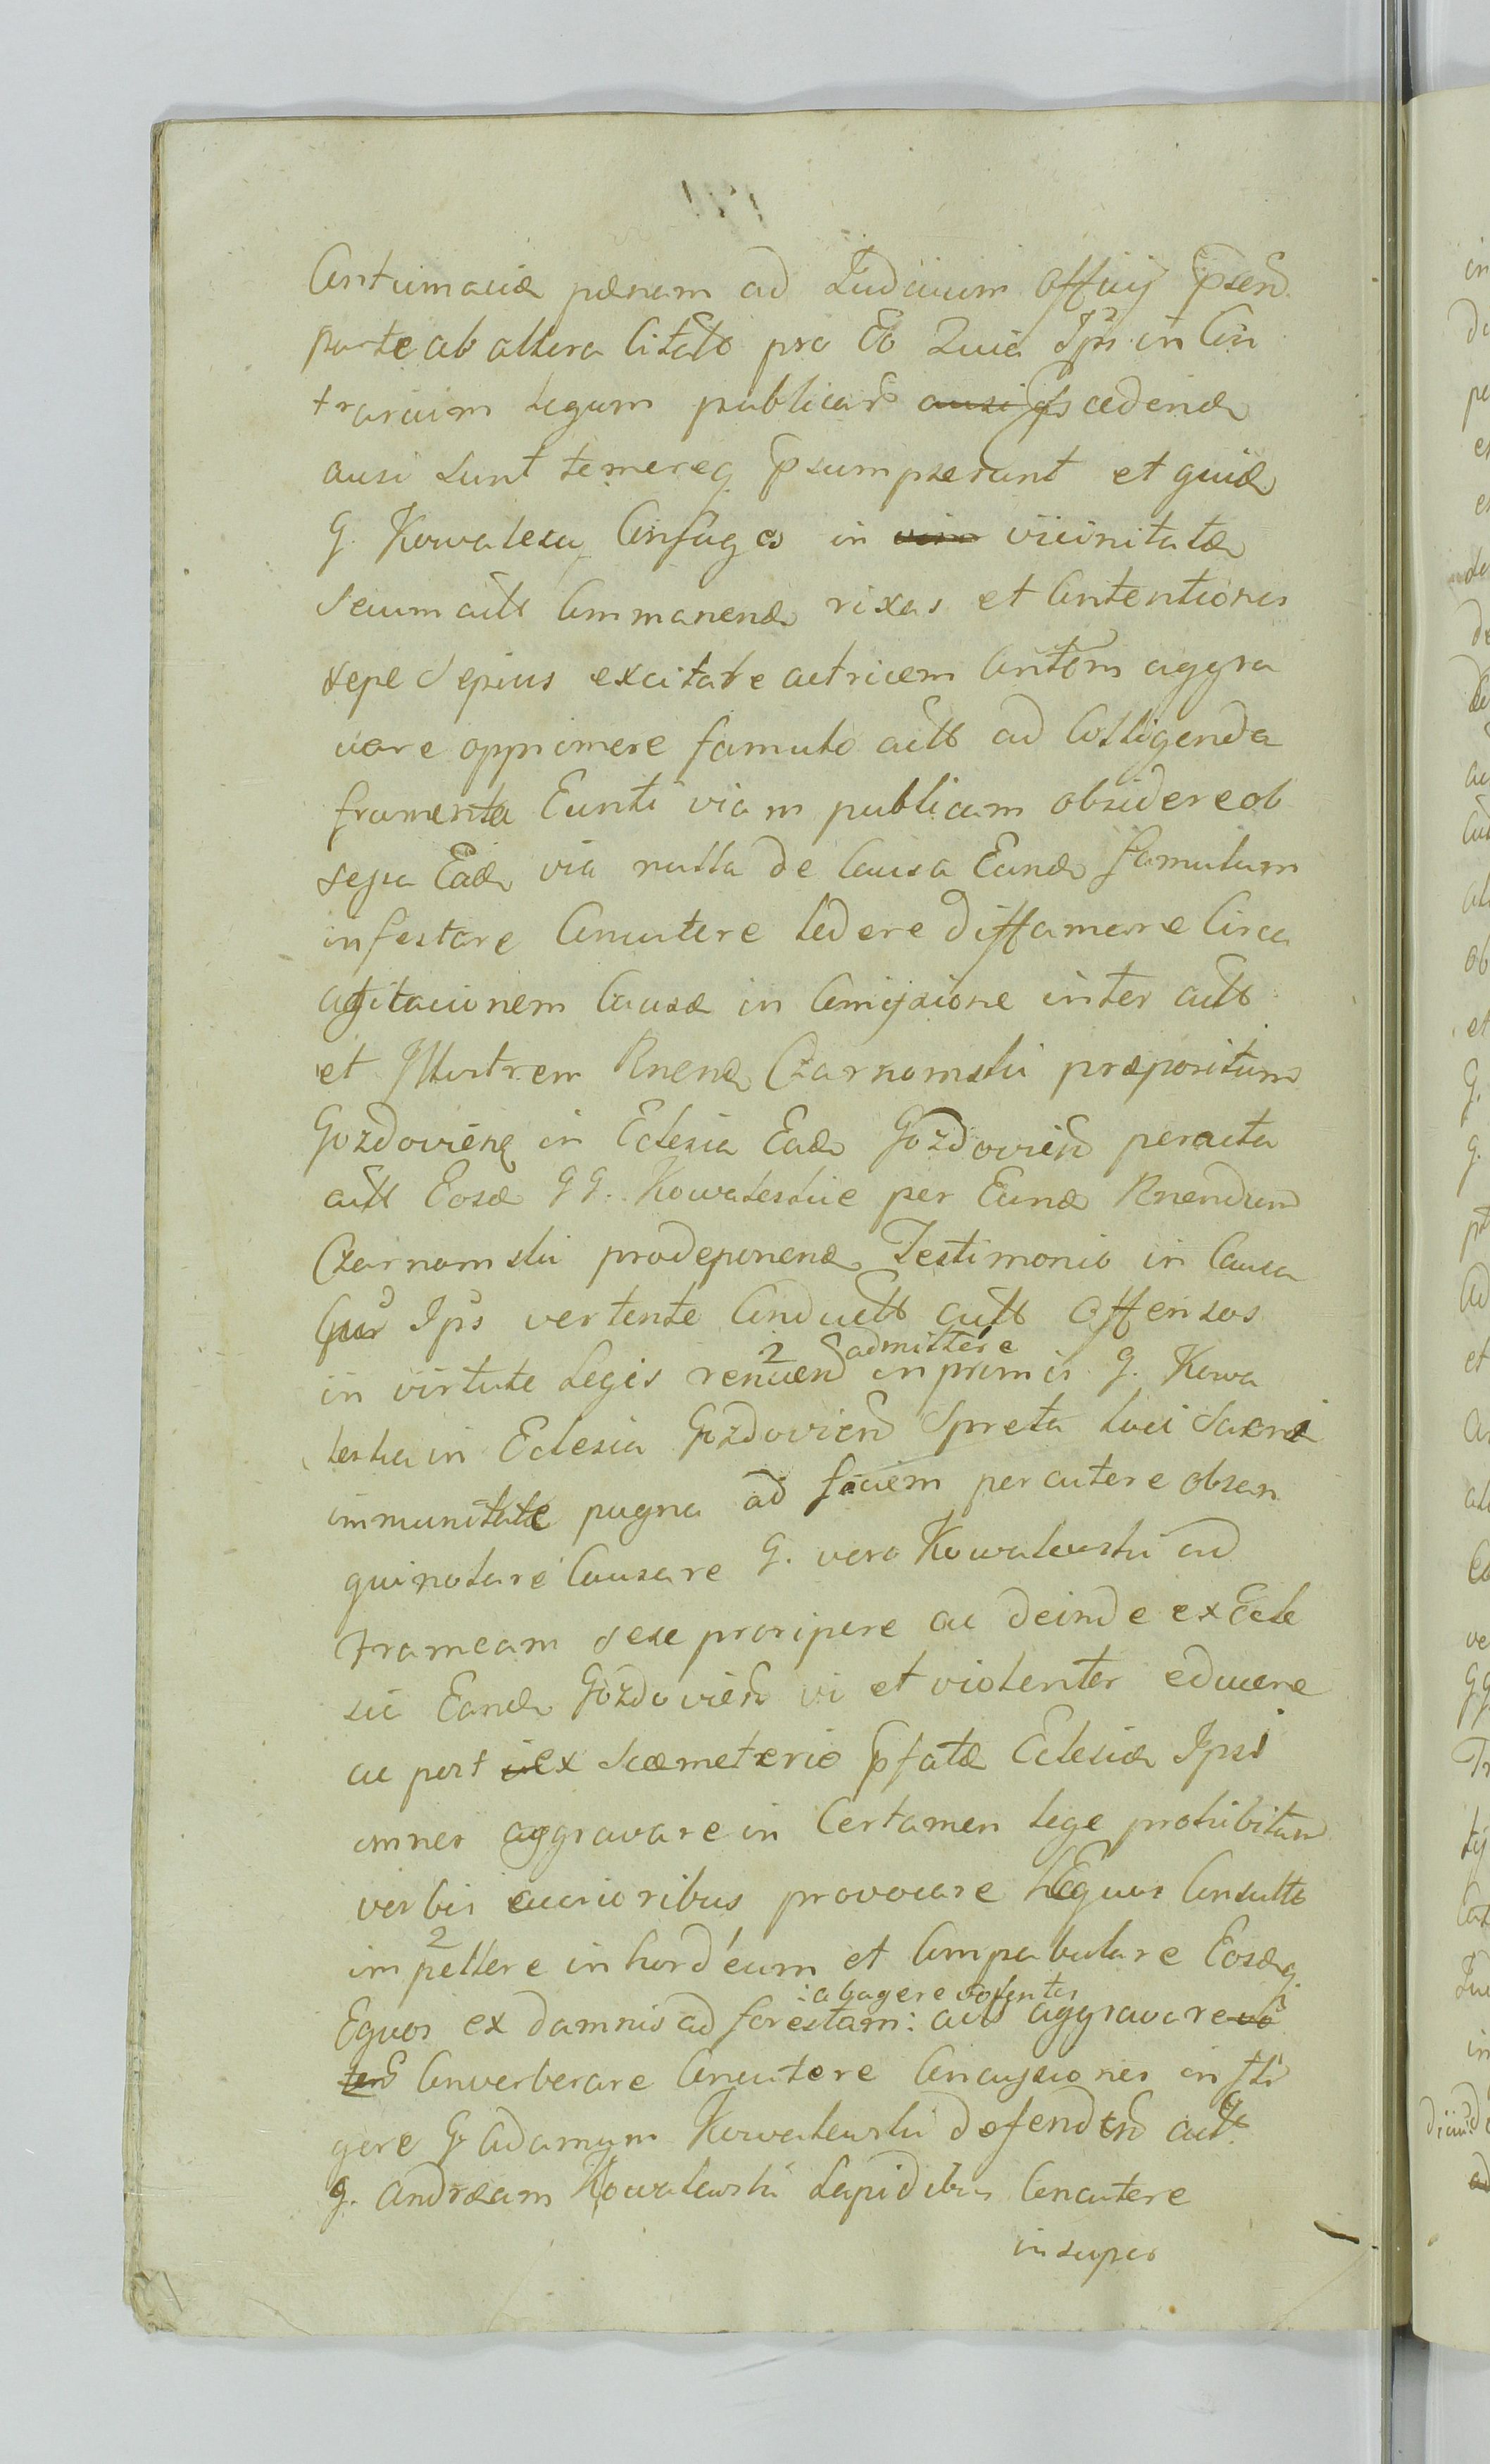 Contumaciæ pænam ad Judicium Officij Præsen
parte ab altera Citato pro Eo Quia Ips in Con
trarium Legum publicar ausi cedend
ausi sunt temereq præsumpserunt et quid
G. Kowalescy Conjuges in vicinitate
Secum act Commanend rixas et Contentiones
sepe Sepius excitare actricem Contem aggra
vare opprimere famulo act ad Colligenda
frumenta Eunti viam publicam obsidere ob
sepa Ead via nulla de Causa Eund famulum
infestare Concutere Ledere diffamare Circa
agitacionem Causæ in Comissione inter act
et Illustrem Rnend Czarnomski præpositum
Gozdoviens in Eclesia Ead Gozdovien peracta
act Eosd GG. Kowaleskie per Eund Rnendum
Czarnomski pro deponend Testimonio in Causa
Cur Ips vertente Conduct act Offensos
admittere
in virtute Legis renuen in primis G. Kowa
leska in Eclesia Gozdovien Spreta Loci Sacri
immunitate pugna ad faciem percutere obsan
guinolare Causare G. vero Kowalewski ad
frameam sese proripere ac deinde ex Ecle
sia Eand Gozdovien vi et violenter educere
ac post ex Scæmeterio præfatæ Eclesiæ Ipsi
omnes aggravare in Certamen Lege prohibitum
verbis acrioribus provocare Equos Consulto
impellere in hordeum et Compabulare Eosdq
: abagere volentes
Equos ex damnis ad forestam: act aggravare vo
tens Converberare Concutere Concussiones infli
gere G Adamum Kowalewski defenden act
G. Andream Kowalewski Lapidibus Concutere
insuper